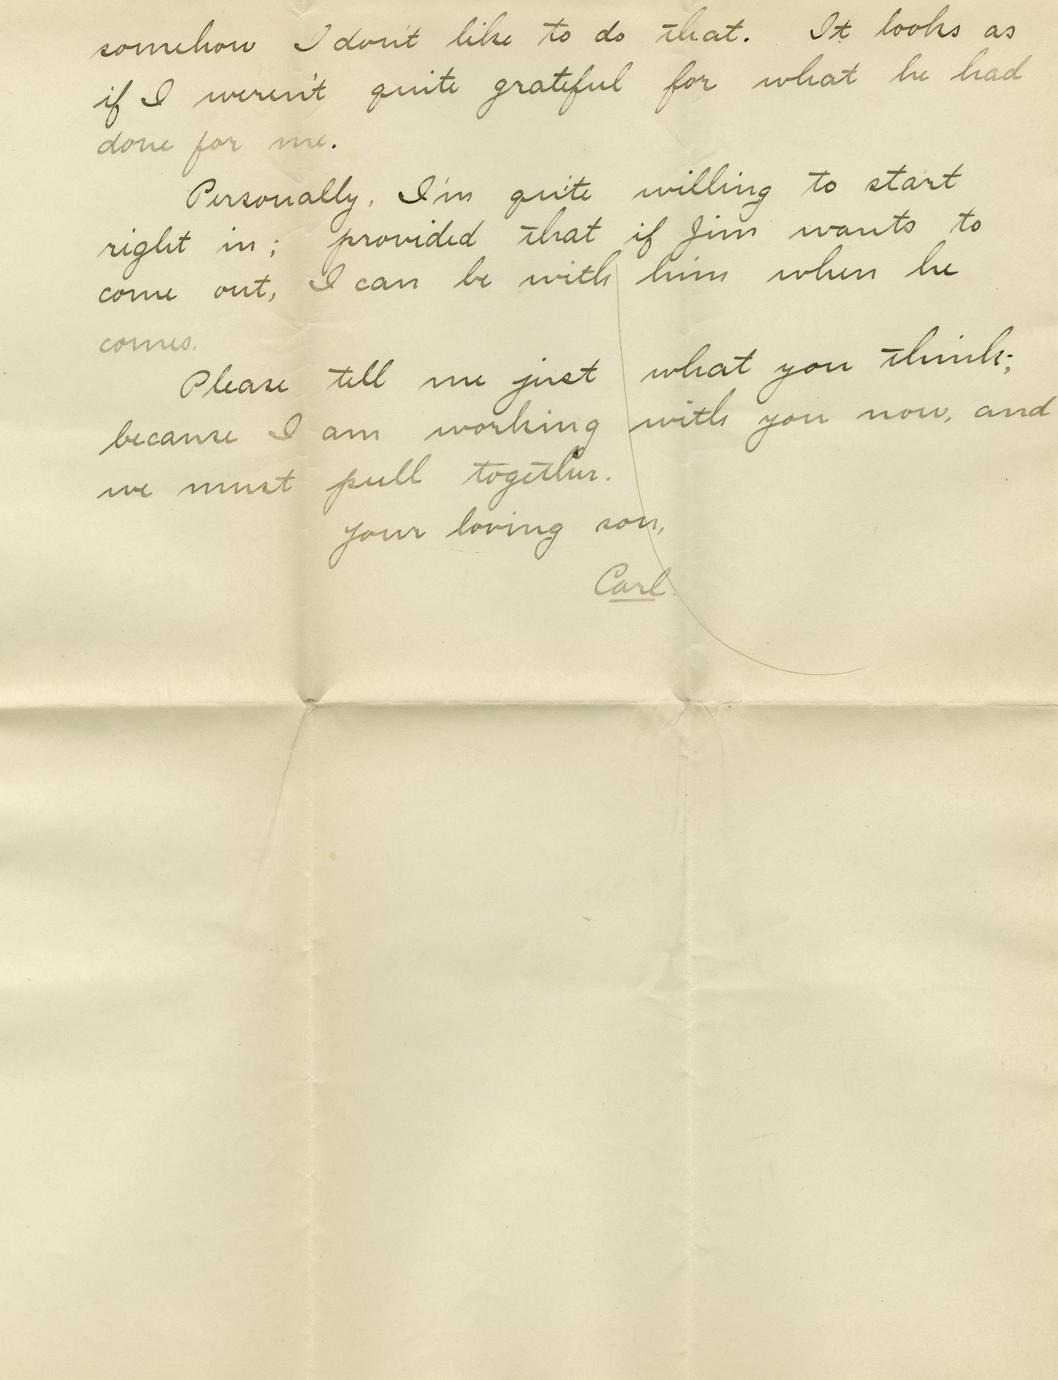 somehow I don't like to do that. It looks as
if I weren't quite grateful for what he had
done for me.
Personally, I'm quite willing to start
right in; provided that if Jim wants to
come out, I can be with him when he
comes.
Please tell me just what you think;
because I am working with you now, and
we must pull together.
Your loving son,
Carl.